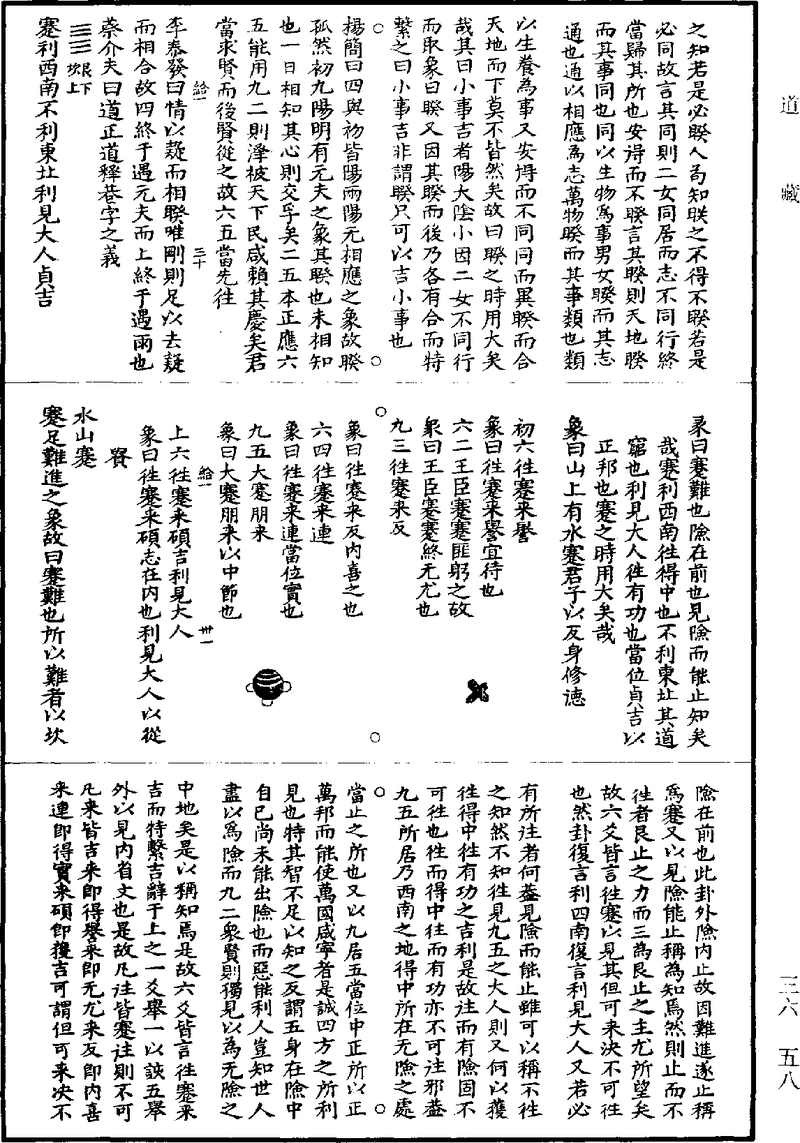 道藏
之知若是必睽人苟知睽之不得不睽若是
必同故言其同則二女同居而志不同行終
當歸其所也安得而不睽言其睽則天地睽
而其事同也同以生物為事男女睽而其志
通也通以相應為志萬物睽而其事類也類
以生養為事又安得而不同同而異睽而合
天地而下莫不皆然矣故曰睽之時用大矣
哉其曰小事吉者陽大陰小因二女不同行
而取象曰睽又因其睽而後乃各有合而特
繫之曰小事吉非謂睽只可以吉小事也
楊簡曰四與初皆陽兩陽无相應之象故睽
孤然初九陽明有元夫之象其睽也未相知
也一日相知其心則交孚矣二五本正應六
五能用九二則澤被天下民咸賴其慶矣君
當求賢而後賢從之故六五當先往
給一
三十
李泰發曰情以疑而相睽唯剛則足以去疑
而相合故四終于遇元夫而上終于遇雨也
蔡介夫曰道正道釋巷字之義
艮下
坎上
蹇利西南不利東北利見大人貞吉
彖曰蹇難也險在前也見險而能止知矣
哉蹇利西南往得中也不利東北其道
窮也利見大人往有功也當位貞吉以
正邦也蹇之時用大矣哉
象曰山上有水蹇君子以反身修德
初六往蹇來譽
象曰往蹇來譽宜待也
六二王臣蹇蹇匪躬之故
象曰王臣蹇蹇終无尤也
九三往蹇來反
象曰往蹇來反內喜之也
六四往蹇來連
象曰往蹇來連當位實也
九五大蹇朋來
象曰大蹇朋來以中節也
給一
卅一
上六往蹇來碩吉利見大人
象曰往蹇來碩志在內也利見大人以從
貴
水山蹇
蹇足難進之象故曰蹇難也所以難者以坎
險在前也此卦外險內止故因難進遂止稱
為蹇又以見險能止稱為知焉然則止而不
往者艮止之力而三為艮止之主尤所望矣
故六爻皆言往蹇以見其但可來決不可往
也然卦復言利西南復言利見大人又若必
有所往者何蓋見險而能止雖可以稱不往
之知然不知往見九五之大人則又何以獲
往得中往有功之吉利是故往而有險固不
可往也往而得中往而有功亦不可往邪蓋
九五所居乃西南之地得中所在无險之處
當止之所也又以九居五當位中正所以正
萬邦而能使萬國咸寧者是誠四方之所利
見也特其智不足以知之反謂五身在險中
自已尚未能出險也而惡能利人豈知世人
盡以為險而九二眾賢則獨見以為无險之
中地矣是以稱知焉是故六爻皆言往蹇來
吉而特繫吉辭于上之一爻舉一以該五舉
外以見內省文也是故凡往皆蹇往則不可
凡來皆吉來即得譽來即无尤來反即內喜
來連即得實來碩即獲吉可謂但可來決不
三六 五八